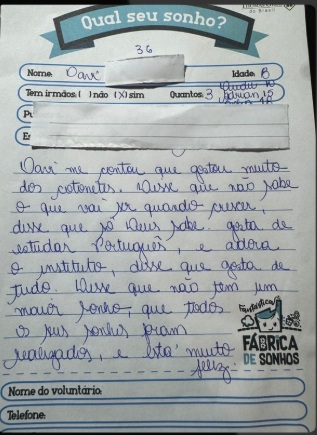 Qual seu sonho?
36
Nome: Davi
Idade: 8
Tem irmãos: ( ) não (X) sim Quantos: 3
Adrian 15
Davi me contou que gostou muito
dos cotonetes. Disse que não sabe
o que vai ser quando crescer,
disse que só Deus sabe. gosta de
estudar Português, e adora
o instituto, disse que gosta de
tudo. Disse que não tem um
maior sonho, que todos
os seus sonhos foram
realizados, e está muito
feliz.
Fantástica
FÁBRICA
DE SONHOS
Nome do voluntário:
Telefone: